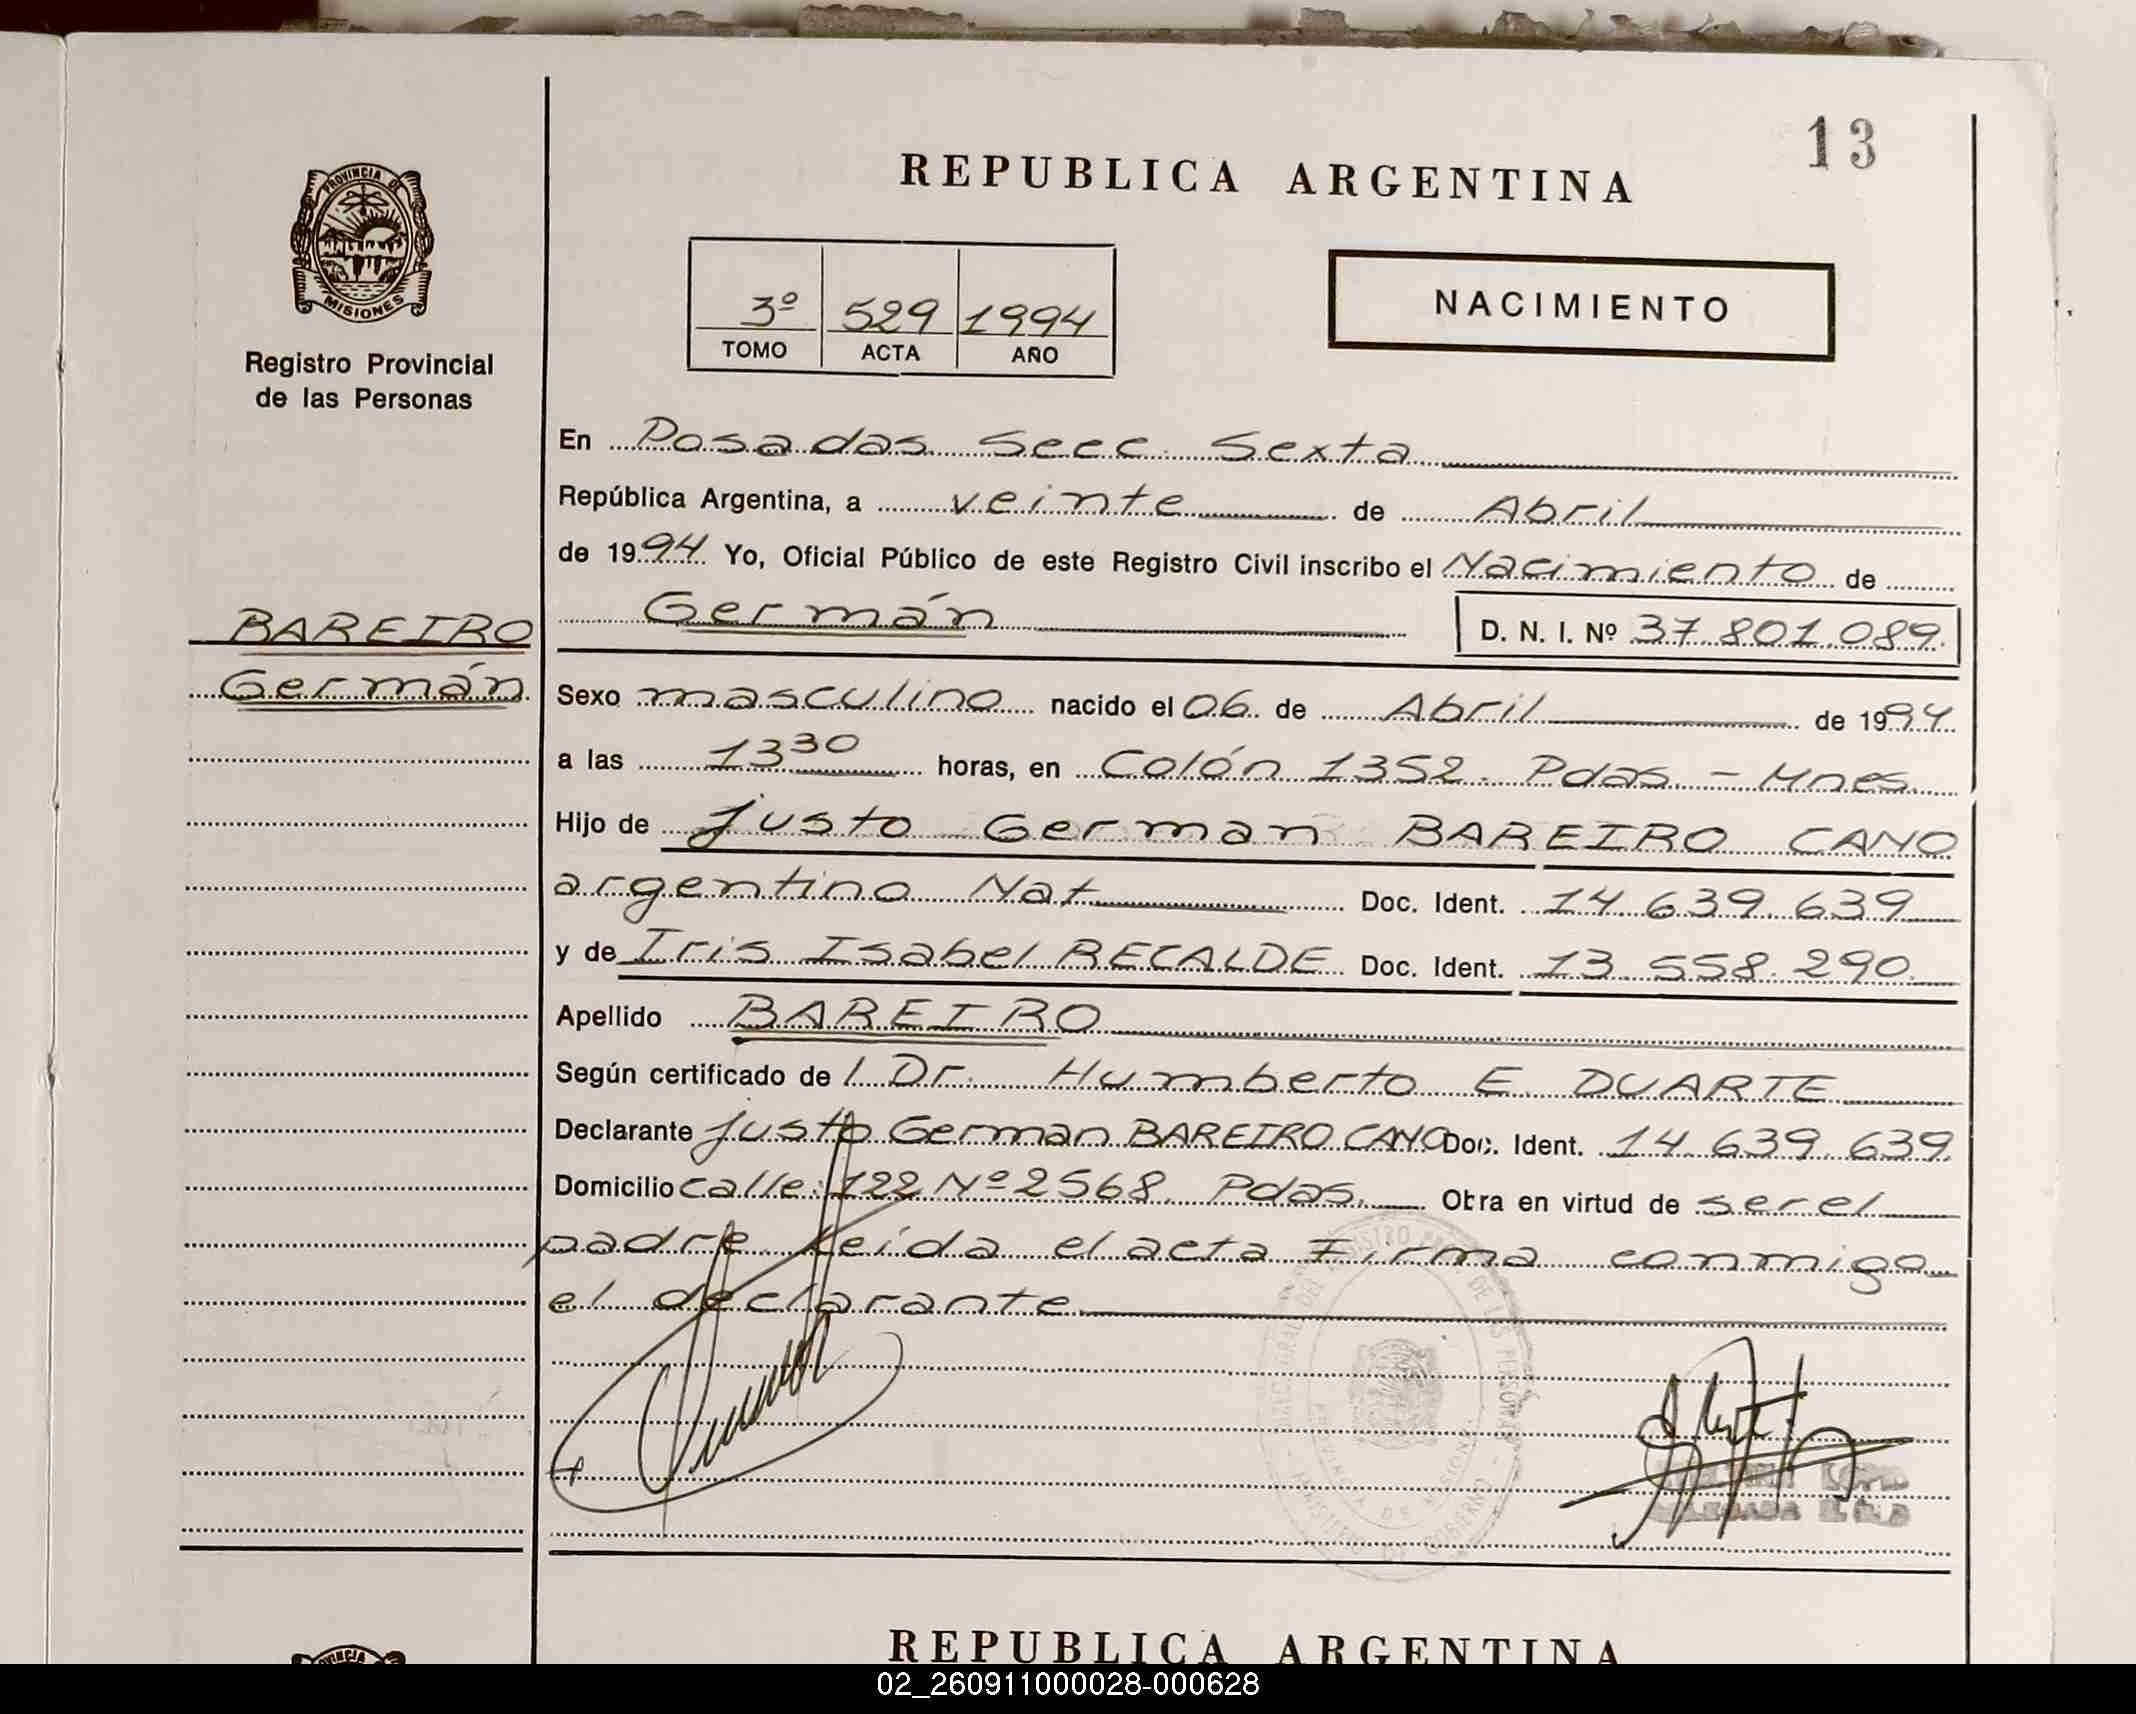 13
REPUBLICA ARGENTINA
PROVINCIA DE
MISIONES
Registro Provincial
de las Personas
3º 529 1994
TOMO ACTA AÑO
NACIMIENTO
En Posadas Secc. Sexta
República Argentina, a veinte de Abril
de 1994 Yo, Oficial Público de este Registro Civil inscribo el Nacimiento de
Germán D. N. I. Nº 37.801.089.
BAREIRO
Germán
Sexo masculino nacido el 06 de Abril de 1994
a las 13 30 horas, en Colón 1352. Pdas. - Mnes.
Hijo de Justo German BAREIRO CANO
argentino Nat Doc. Ident. 14.639.639
y de Iris Isabel RECALDE Doc. Ident. 13.558.290.
Apellido BAREIRO
Según certificado de l Dr. Humberto E DUARTE
Declarante Justo German BAREIRO CANO Doc. Ident. 14.639.639
Domicilio calle: 122 Nº 2568. Pdas. Obra en virtud de ser el
padre leída el acta Firma conmigo
el declarante
REPUBLICA ARGENTINA
02_260911000028-000628